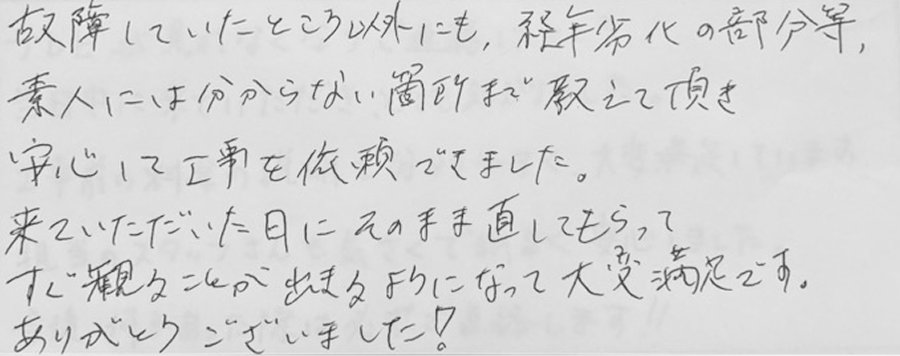 故障していたところ以外にも,経年劣化の部分等,
素人には分からない箇所まで教えて頂き
安心して工事を依頼できました。
来ていただいた日にそのまま直してもらって
すぐ観ることが出来るようになって大変満足です。
ありがとうございました!!